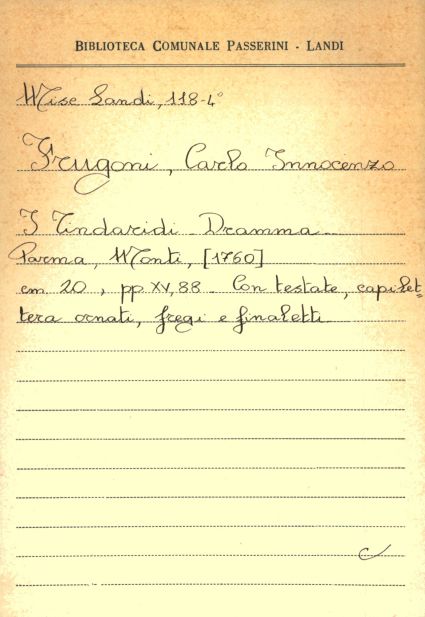 BIBLIOTECA COMUNALE PASSERINI - LANDI
Misc Landi, 118-4°
Frugoni, Carlo Innocenzo
I Tindaridi - Dramma -
Parma, Monti, [1760]
cm 20, pp. XV, 88. Con testate, capilet=
tera ornati, fregi e finaletti.